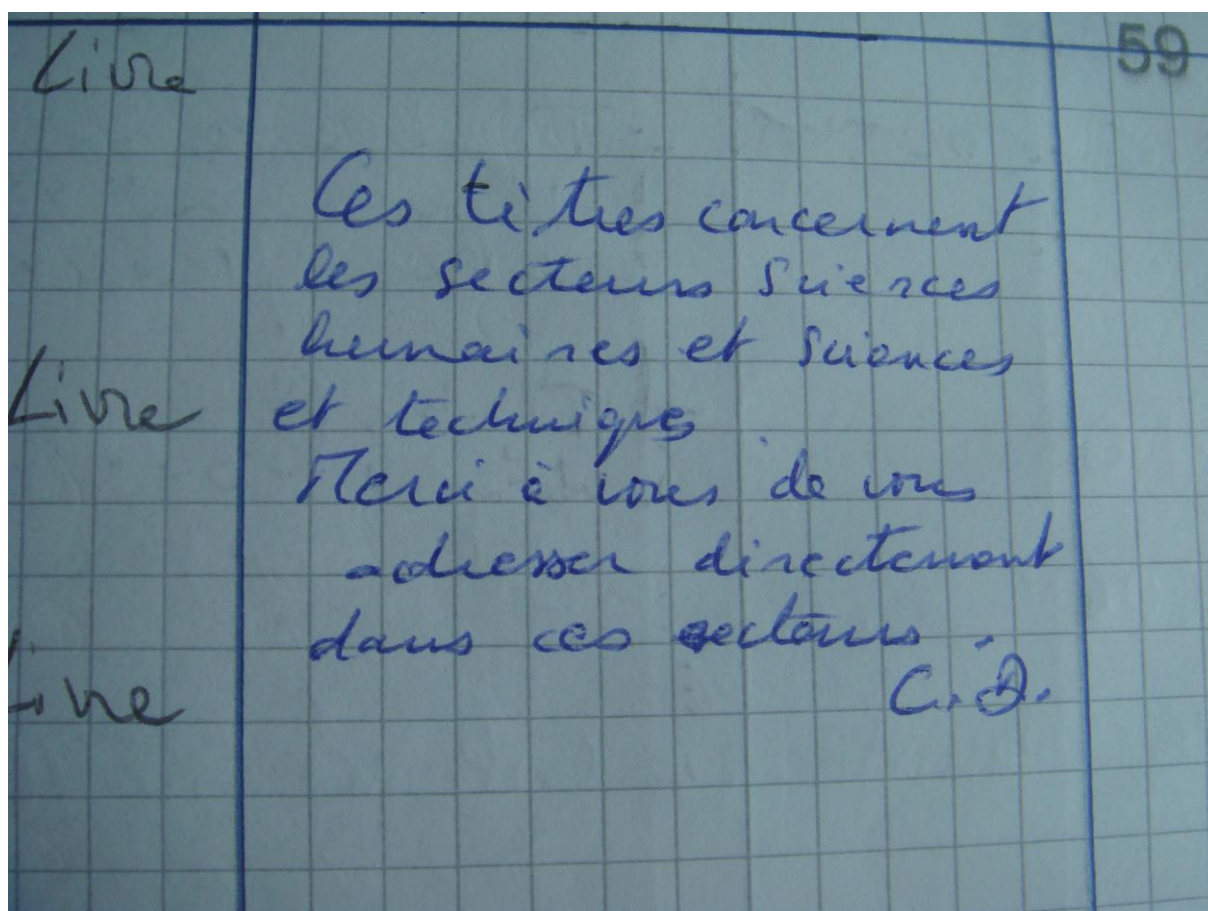 Livre
59
Ces titres concernent
les secteurs Sciences
humaines et Sciences
Livre
et techniques
Merci à vous de vous
adresser directement
dans ces secteurs.
Livre
C.D.